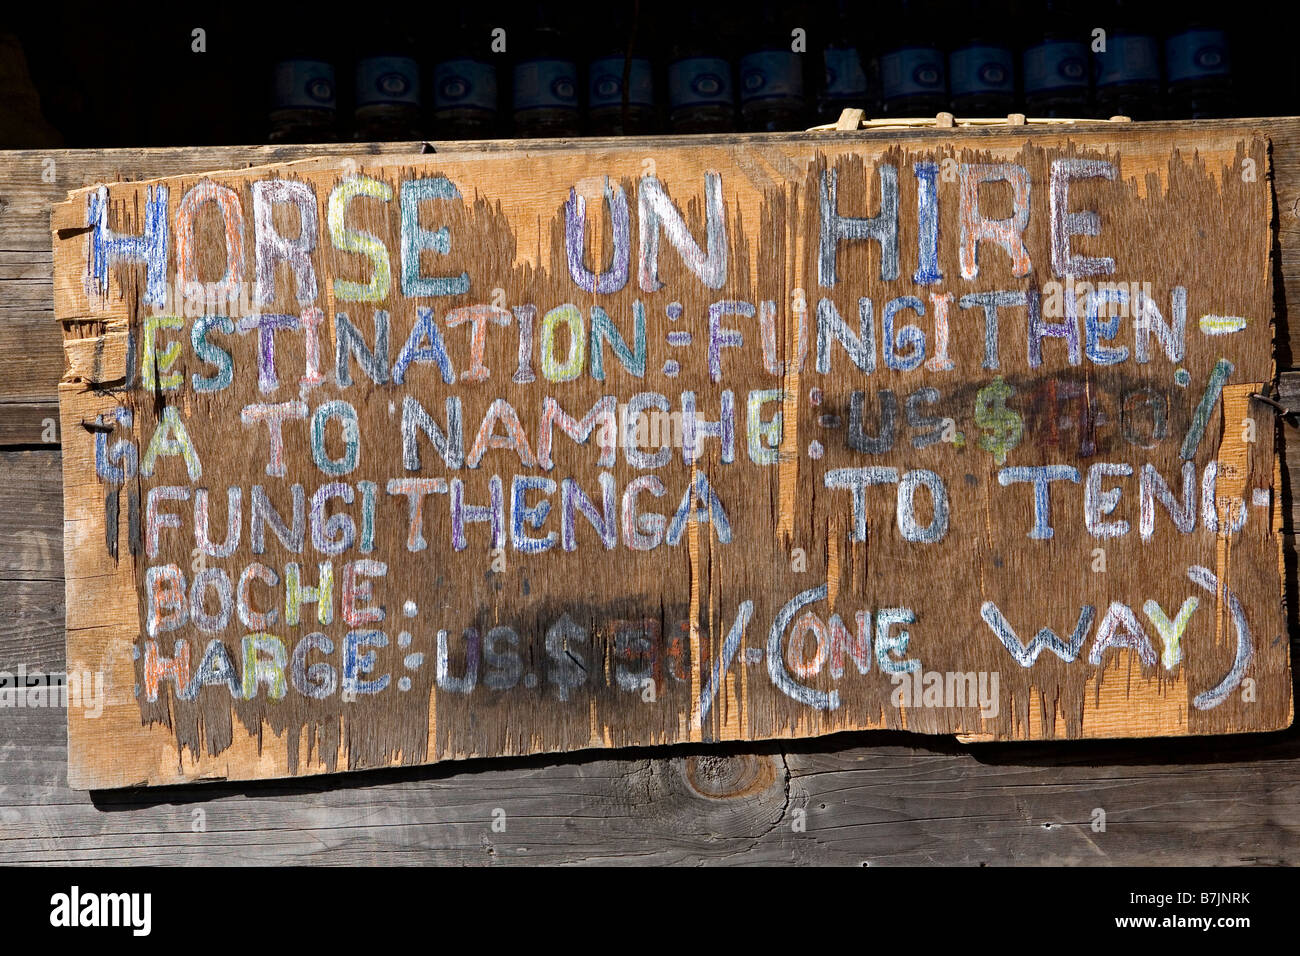 HORSE ON HIRE
DESTINATION:-FUNGITHEN-
GA TO NAMCHE: US.$
FUNGITHENGA TO TENG-
BOCHE.
CHARGE: US.$ 50/-(ONE WAY)
alamy
Image ID: B7JNRK
www.alamy.com